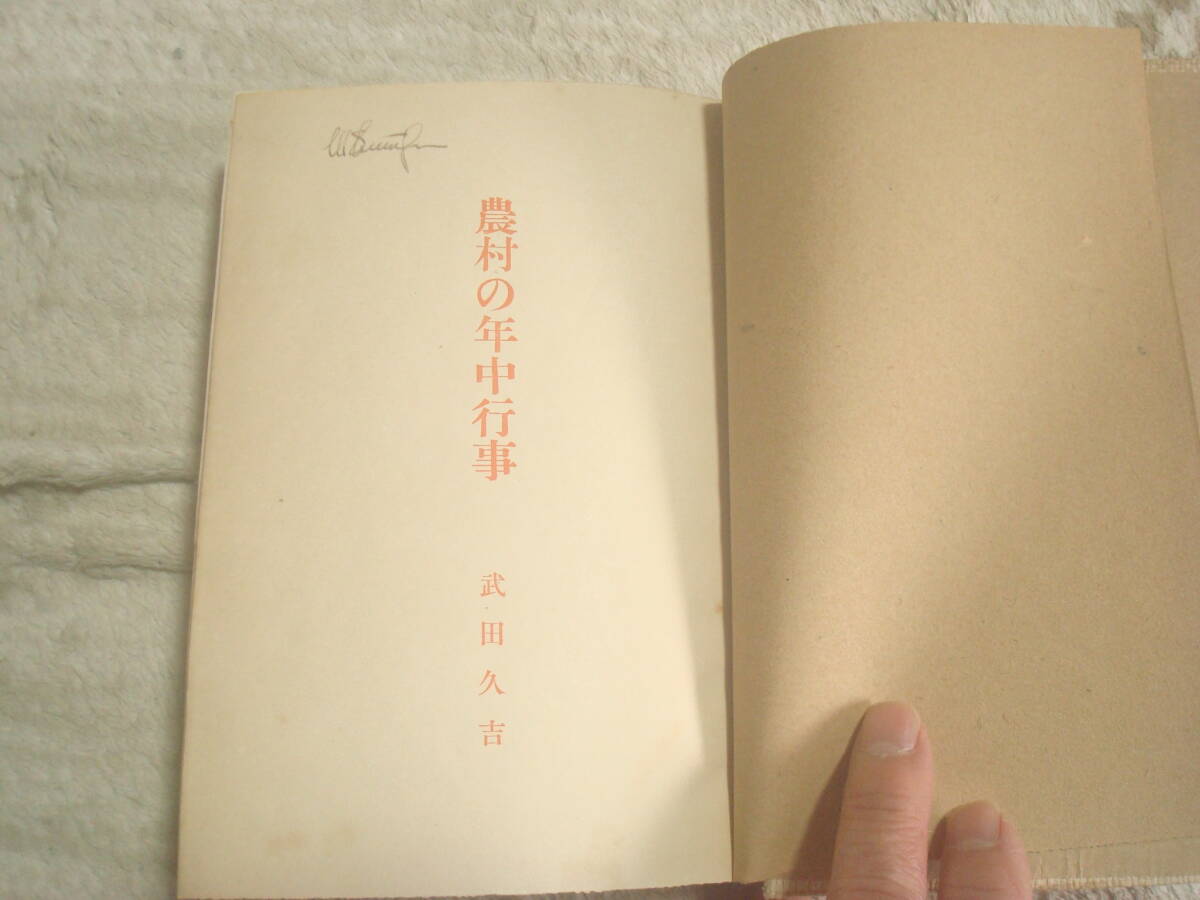 農村の年中行事
武田久吉